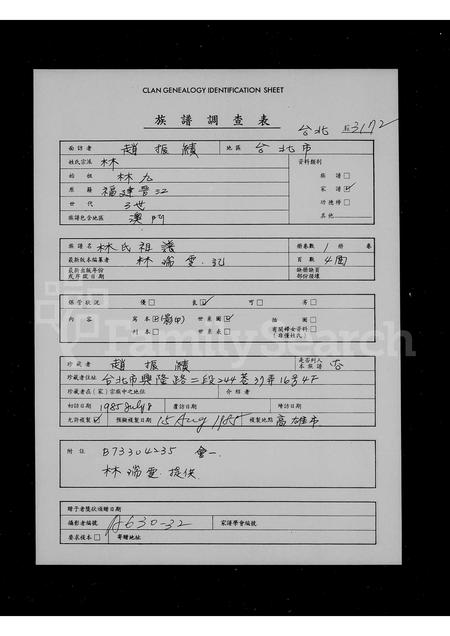 CLAN GENEALOGY IDENTIFICATION SHEET
族譜調查表
台北 3172
面訪者 趙振績 地區 台北市
姓氏宗派 林 資料類別
始祖 林九 族譜□
原籍 福建晉江 家譜☑
世代 3世 功德榜□
族譜包含地區 澳門 其他
族譜名 林氏祖譜 冊卷數 1 冊 卷
最新版本編纂者 林瑞雲 記 頁數 4面
最新出版年份或序跋日期 缺冊缺頁部份後壞
保管狀況 優□ 良☑ 可□ 劣□
內容 寫本☑(影印) 世系圖☑ 插圖□
刊本□ 世系表□ 有關婦女資料□
(非僅姓氏)
珍藏者 趙振績 是否列入本族譜 否
珍藏者住址 台北市興隆路二段244巷37弄16号4F
珍藏者在(家)宗族中之地位 介紹者
初訪日期 1985 July 8 覆訪日期 隨訪日期
允許複製☑ 預擬複製日期 15 Aug 1985 複製地點 高雄市
附註 B73304235 會一.
林瑞雲.提供
贈予者獎狀頒贈日期
攝影者編號 A630-32 家譜學會編號
要求複本□ 寄贈地址
FamilySearch